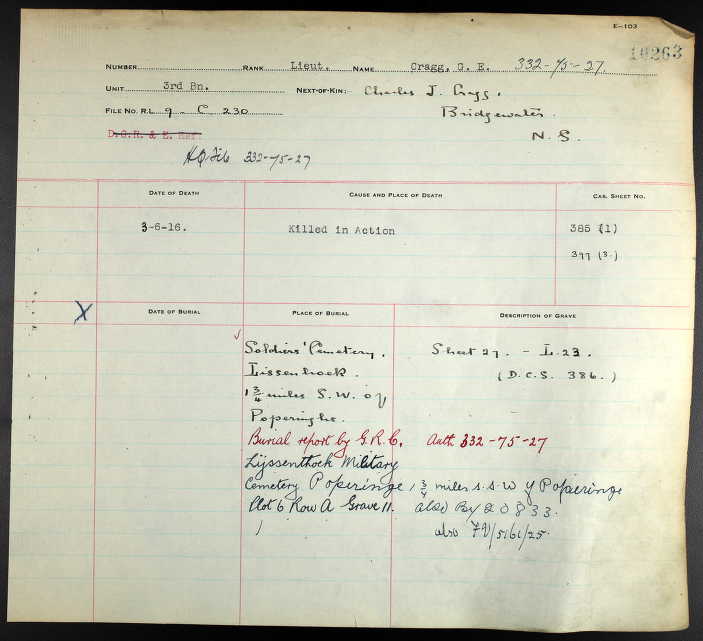 E-103
10263
NUMBER RANK Lieut. NAME Cragg, G. E. 332-75-27.
UNIT 3rd Bn. NEXT-OF-KIN: Charles J. Cragg.
FILE NO. R.L. 9 - C 230 Bridgewater.
D.G.R. & E. Ref. N.S.
HQ File 332-75-27
DATE OF DEATH CAUSE AND PLACE OF DEATH CAS. SHEET NO.
3-6-16. Killed in Action 385 (1)
397 (3.)
X DATE OF BURIAL PLACE OF BURIAL DESCRIPTION OF GRAVE
Soldiers' Cemetery. Sheet 27. - L. 23.
Lissenhoek. (D.C.S. 386.)
1 3/4 miles S.W. of
Poperinghe.
Burial report by G.R.C. Auth 332-75-27
Lijssenthoek Military
Cemetery Poperinge, 1 3/4 miles S.S.W of Poperinge
Plot 6 Row A Grave 11. also By 20833.
also